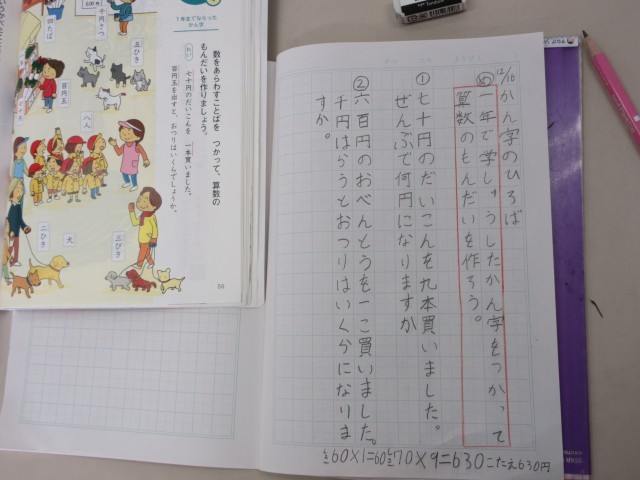 12/16
かん字のひろば
め 一年で学しゅうしたかん字をつかって
算数のもんだいを作ろう。
① 七十円のだいこんを九本買いました。
ぜんぶで何円になりますか
② 六百円のおべんとうを一こ買いました。
千円はらうとおつりはいくらになりま
すか。
60×1=60
70×9=630 こたえ630円
1年生でならった
かん字
数をあらわすことばを つかって、算数の
もんだいを作りましょう。
れい
七十円のだいこんを 一本買いました。
百円玉を出すと、おつりはいくらでしょうか。
千円さつ
四たば
五ひき
百円玉
八人
三びき
犬
二ひき
56